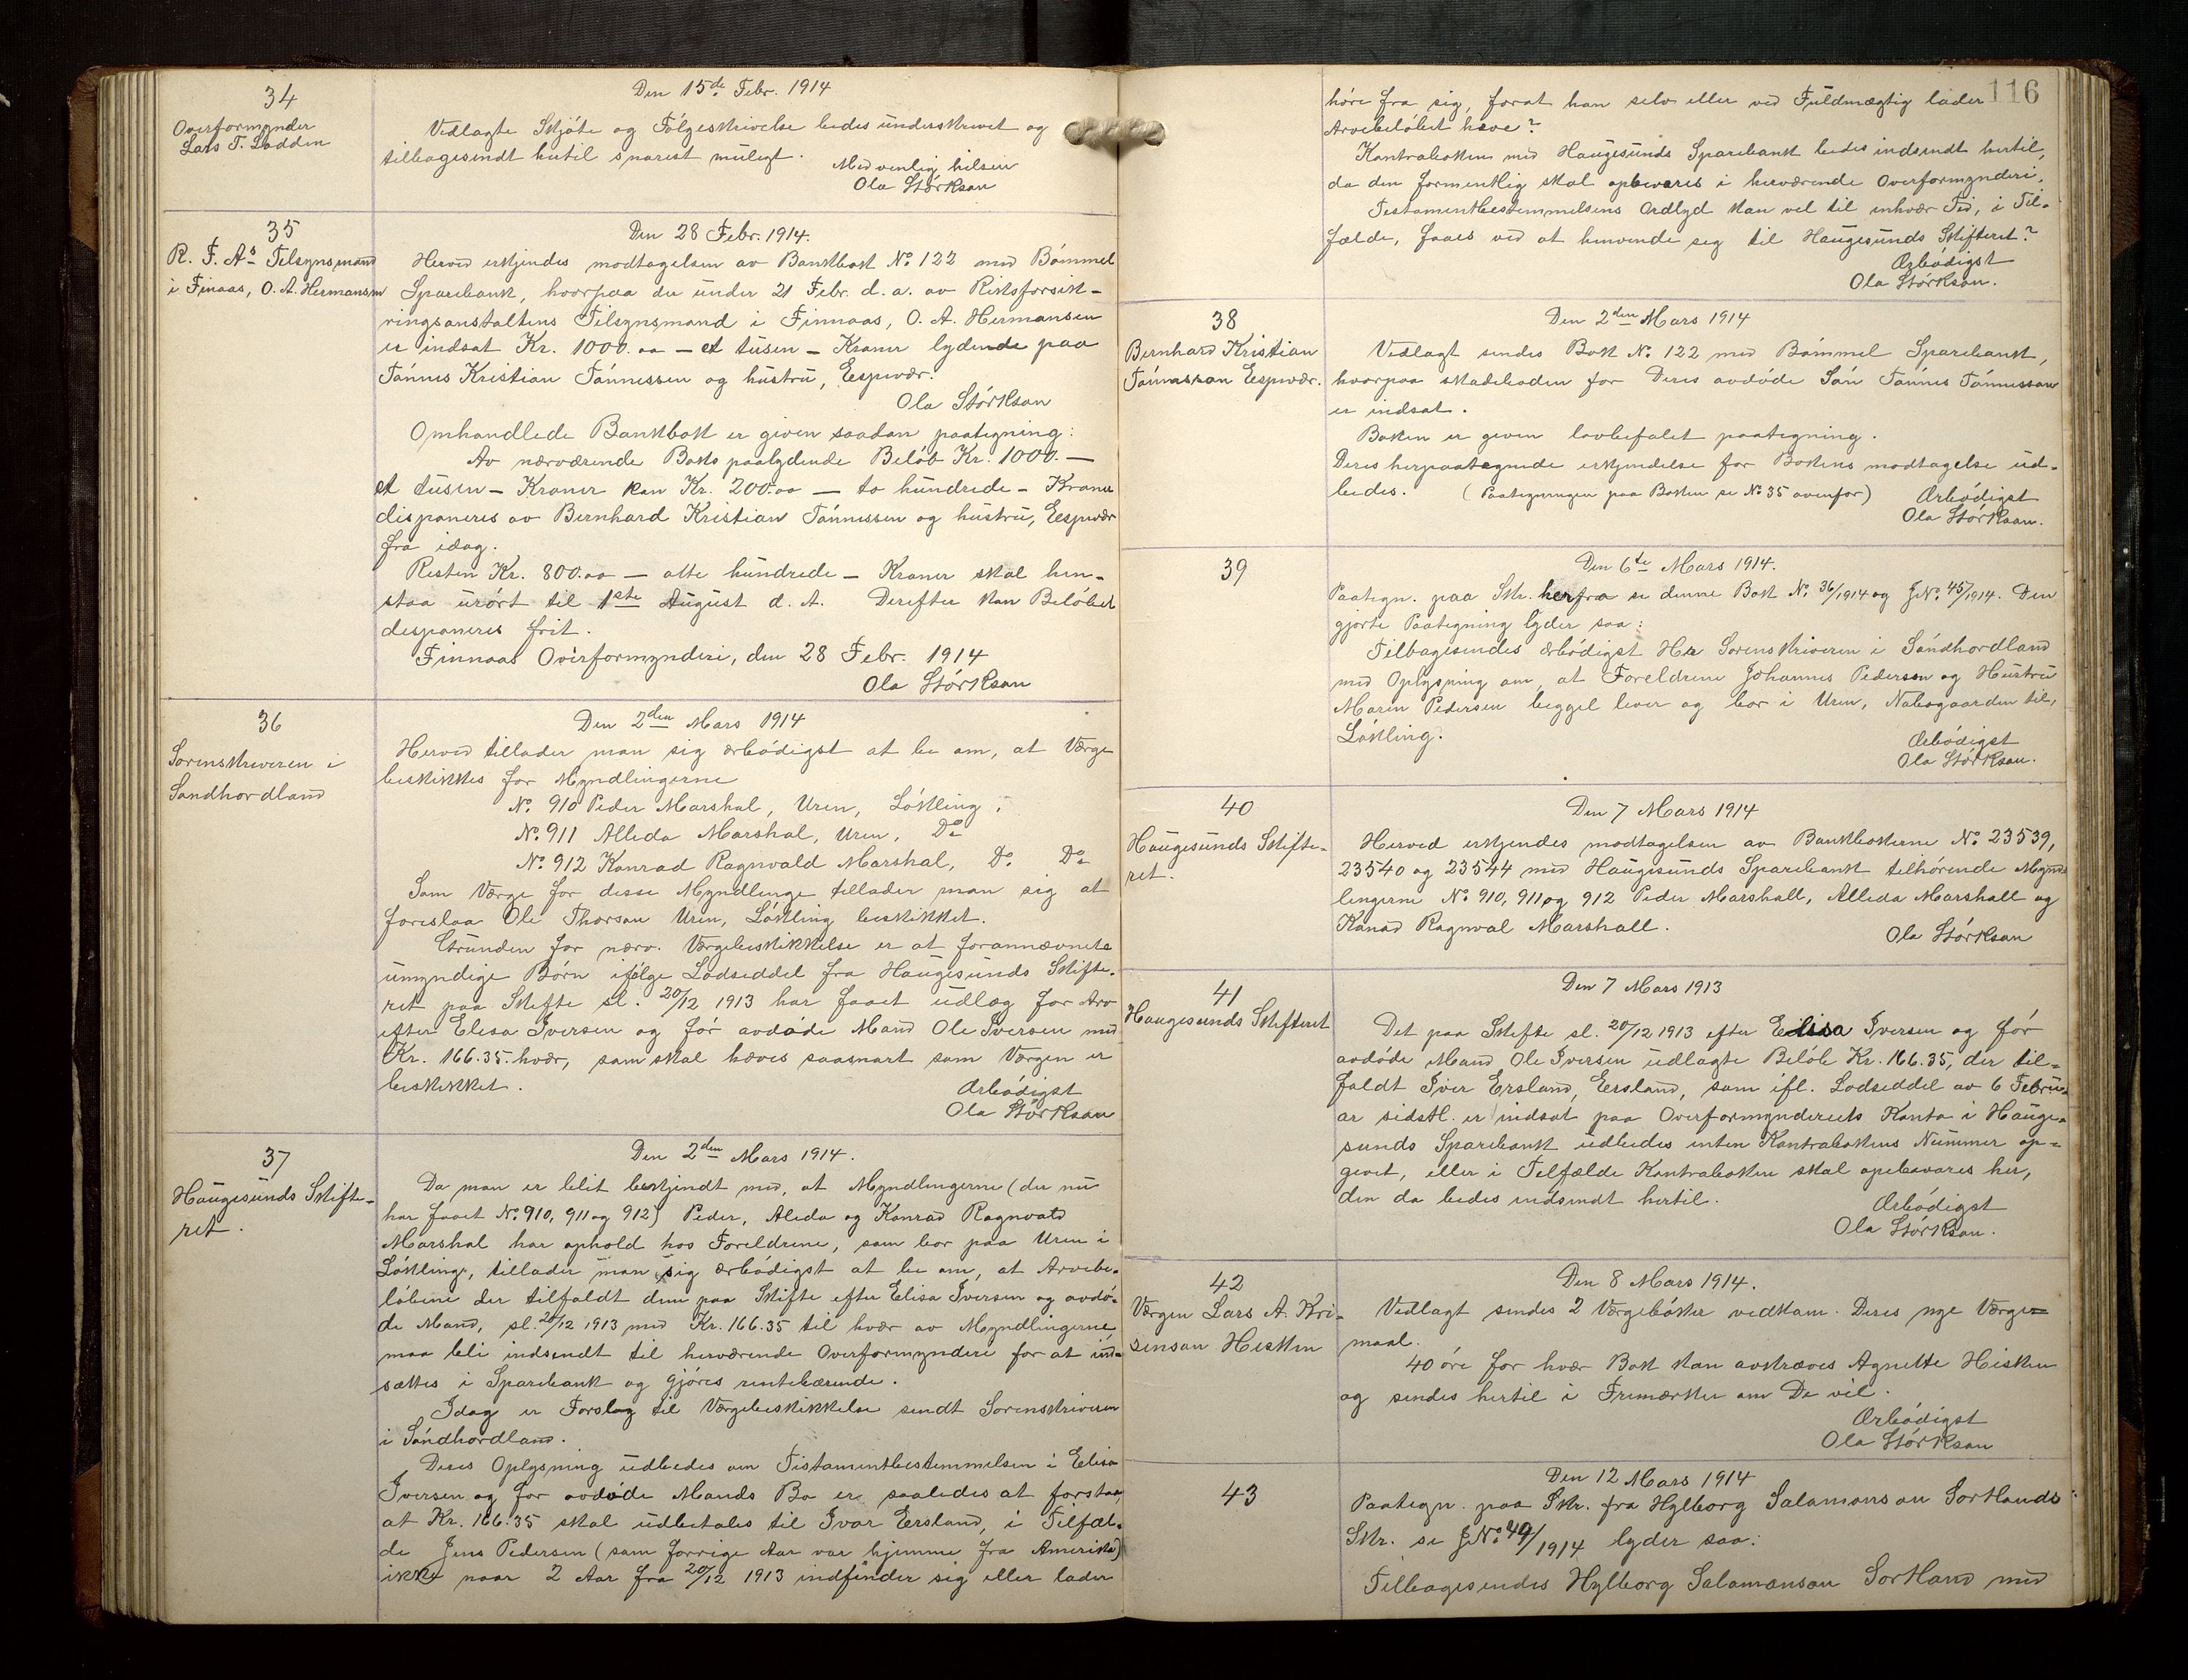 34
Overformynder
Lars T. Lodden
Den 15de Febr. 1914
Vedlagte Skjöte og Fölgeskrivelse bedes underskrevet og
tilbagesendt hertil snarest muligt.
Med venlig hilsen
Ola Störkson
35
R. F. As Tilsynsmand
i Finaas, O. A. Hermansen
Den 28 Febr. 1914.
Herved erkjendes modtagelsen av Bankbok No 122 med Bömmel
Sparebank, hvorpaa der under 21 Febr. d. a. av Riksforsik-
ringsanstaltens Tilsynsmand i Finnaas, O. A. Hermansen
er indsat Kr. 1000.00 - et tusen - Kroner lydende paa
Tönnes Kristian Tönnessen og hustru, Eespevær.
Ola Störkson
Omhandlede Bankbok er given saadan paategning:
Av nærværende Boks paalydende Belöb Kr. 1000. -
et tusen - Kroner kan Kr. 200.00 - to hundrede - Kroner
disponeres av Bernhard Kristian Tönnessen og hustru, Eespevær
fra idag.
Resten Kr. 800.00 - otte hundrede - Kroner skal hen-
staa urört til 1ste August d. A. Derefter kan Belöbet
disponeres frit.
Finnaas Overformynderi, den 28 Febr. 1914
Ola Störkson
36
Sorenskriveren i
Søndhordland
Den 2den Mars 1914
Herved tillader man sig ærbödigst at be om, at Værge
beskikkes for Myndlingerne
No. 910 Peder Marshal, Uren, Lökling.
No. 911 Alleda Marshal, Uren, Do
No. 912 Konrad Ragnvald Marshal, Do. Do
Som Værge for disse Myndlinge tillader man sig at
foreslaa Ole Thorson Uren, Lökling beskikket.
Grunden for nærv. Værgebeskikkelse er at forannævnete
umyndige Börn ifölge Lodseddel fra Haugesunds Skifte-
ret paa Skifte sl. 20/12 1913 har faaet udlæg for Arv
efter Elisa Iversen og för avdöde Mand Ole Iversen med
Kr. 166.35. hvær, som skal hæves saasnart som Værgen er
beskikket.
Ærbödigst
Ola Störkson
37
Haugesunds Skifte-
ret.
Den 2den Mars 1914.
Da man er blit bekjendt med, at Myndlingerne (der nu
har faaet No. 910, 911 og 912) Peder, Aleda og Konrad Ragnvald
Marshal har ophold hos Foreldrene, som bor paa Uren i
Lökling, tillader man sig ærbödigst at be om, at Arvebe-
löbene der tilfaldt dem paa Skifte efter Elisa Iversen og avdö-
de Mand, sl. 20/12 1913 med Kr. 166.35 til hvær av Myndlingerne
maa bli indsendt til herværende Overformynderi for at ind-
sættes i Sparebank og gjöres rentebærende.
Idag er Forslag til Værgebeskikkelse sendt Sorenskriveren
i Söndhordland.
Deres Oplysning udbedes om Testamentbestemmelsen i Elisa
Iversen og för avdöde Mands Bo er saaledes at forstaa,
at Kr. 166.35 skal udbetales til Ivar Eersland, i Tilfæl-
de Jens Pedersen (som forrige Aar var hjemme fra Amerika)
ikke naar 2 Aar fra 20/12 1913 indfinder sig eller lader
116
höre fra sig, forat han selv eller ved Fuldmægtig lader
Arvebelöbet hæve?
Kontraboken med Haugesunds Sparebank bedes indsendt hertil,
da den formentlig skal opbevares i herværende Overformynderi.
Testamentbestemmelsens Ordlyd kan vel til enhvær Tid, i Til-
fælde, faaes ved at henvende seg til Haugesunds Skifteret?
Ærbödigst
Ola Störkson.
38
Bernhard Kristian
Tönneson Eespevær.
Den 2den Mars 1914
Vedlagt sendes Bok No. 122 med Bömmel Sparebank,
hvorpaa skadeboden for Deres avdöde Sön Tönnes Tönnesson
er indsat.
Boken er given lovbefalet paategning.
Deres herpaategnede erkjendelse for Bokens modtagelse ud-
bedes. (Paategningen paa Boken se No 35 ovenfor)
Ærbödigst
Ola Störkson.
39
Den 6te Mars 1914.
Paategn. paa Skr. herfra se denne Bok No. 36/1914 og JNo. 45/1914. Den
gjorte Paategning lyder saa:
Tilbagesendes ærbödigst Her Sorenskriveren i Söndhordland
med Oplysning om, at Foreldrene Johannes Pederson og Hustru
Maren Pedersen begge lever og bor i Uren, Nabogaarden til,
Lökling.
Ærbödigst
Ola Störkson.
40
Haugesunds Skifte-
ret.
Den 7 Mars 1914
Herved erkjendes modtagelsen av Bankbökerne No. 23539,
23540 og 23544 med Haugesunds Sparebank tilhörende Mynd-
lingerne No. 910, 911 og 912 Peder Marshall, Alleda Marshall og
Konad Ragnval Marshall.
Ola Störkson
41
Haugesunds Skifteret
Den 7 Mars 1913
Det paa Skifte sl. 20/12 1913 efter Elisa Iversen og för
avdöde Mand Ole Iversen udlagte Belöb Kr. 166.35, der til-
faldt Iver Ersland, Eersland, som ifl. Lodseddel av 6 Febru-
ar sidstl. er indsat paa Overformynderiets Konto i Hauge-
sunds Sparebank udbedes enten Kontrabokens Nummer op-
gevet, eller i Tilfælde Kontraboken skal opebavares her,
den da bedes indsendt hertil.
Ærbödigst
Ola Störkson.
42
Værgen Lars A. Kri-
senson Hesken
Den 8 Mars 1914.
Vedlagt sendes 2 Værgeböker vedkom. Deres nye Værge-
maal.
40 öre for hvær Bok kan avkræves Agnette Hisken
og sendes hertil i Frimærker om De vil.
Ærbödigst
Ola Störkson
43
Den 12 Mars 1914
Paategn. paa Skr. fra Hylborg Salamonson Sortlands
Skr. se JNo 49/1914 lyder saa:
Tilbagesendes Hylborg Salamonson Sortland med